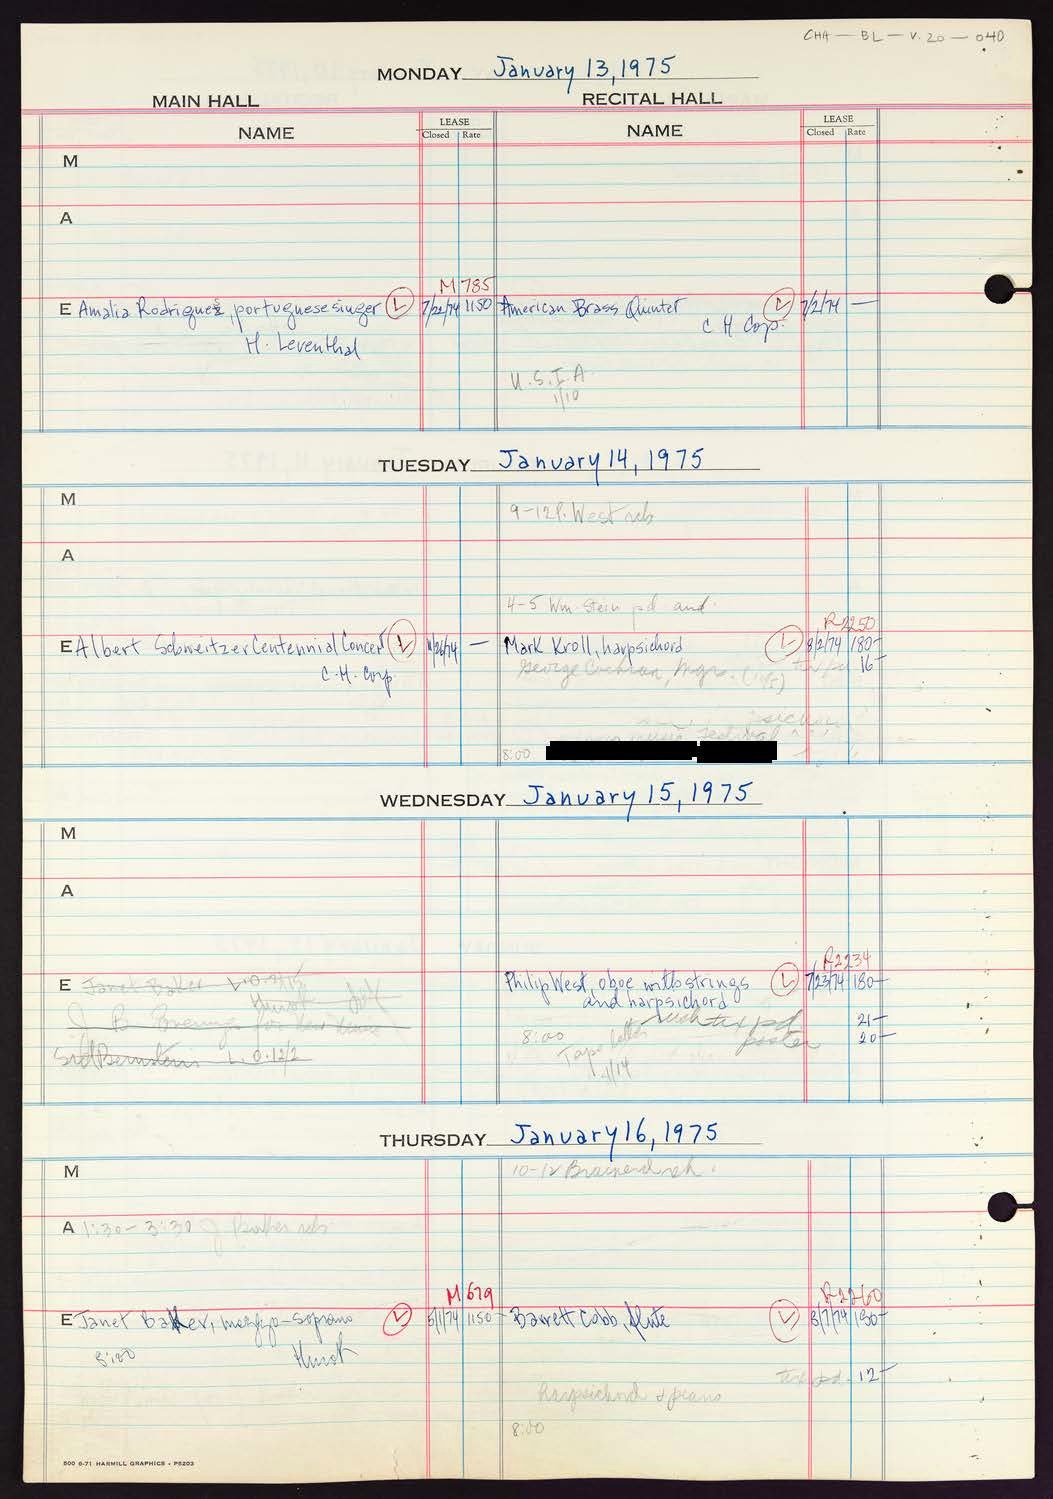 CHA — BL — V. 20 — 040
MONDAY January 13, 1975
MAIN HALL
RECITAL HALL
NAME
LEASE
Closed Rate
NAME
LEASE
Closed Rate
M
A
M 785
E Amalia Rodrigues, portuguese singer L 7/22/74 1150
H. Leventhal
American Brass Quintet L 7/2/74 —
C H Corp.
U.S.I.A.
1/10
TUESDAY January 14, 1975
M
9-12P. West reh
A
4-5 Wm. Stein pd and.
R2250
E Albert Schweitzer Centennial Concert L 11/26/74 —
C.H. Corp.
Mark Kroll, harpsichord L 8/2/74 180-
George Cochran, Mgr. 16-
8:00
WEDNESDAY January 15, 1975
M
A
R2234
E Janet Baker
Hurok
J B Evening for New Music
Sid Bernstein L.O. 12/2
Philip West, oboe with strings L 7/23/74 180-
and harpsichord
21-
8:00 poster 20-
Tape letter
1/14
THURSDAY January 16, 1975
M
10-12 Brainerd reh.
A 1:30-3:30 J Baker reh
M 679
R2260
E Janet Baker, mezzo-soprano L 5/1/74 1150-
8:00 Hurok
Barrett Cobb, flute L 8/7/74 180-
tix pd. 12-
harpsichord & piano
8:00
500 6-71 HARMILL GRAPHICS - P5203